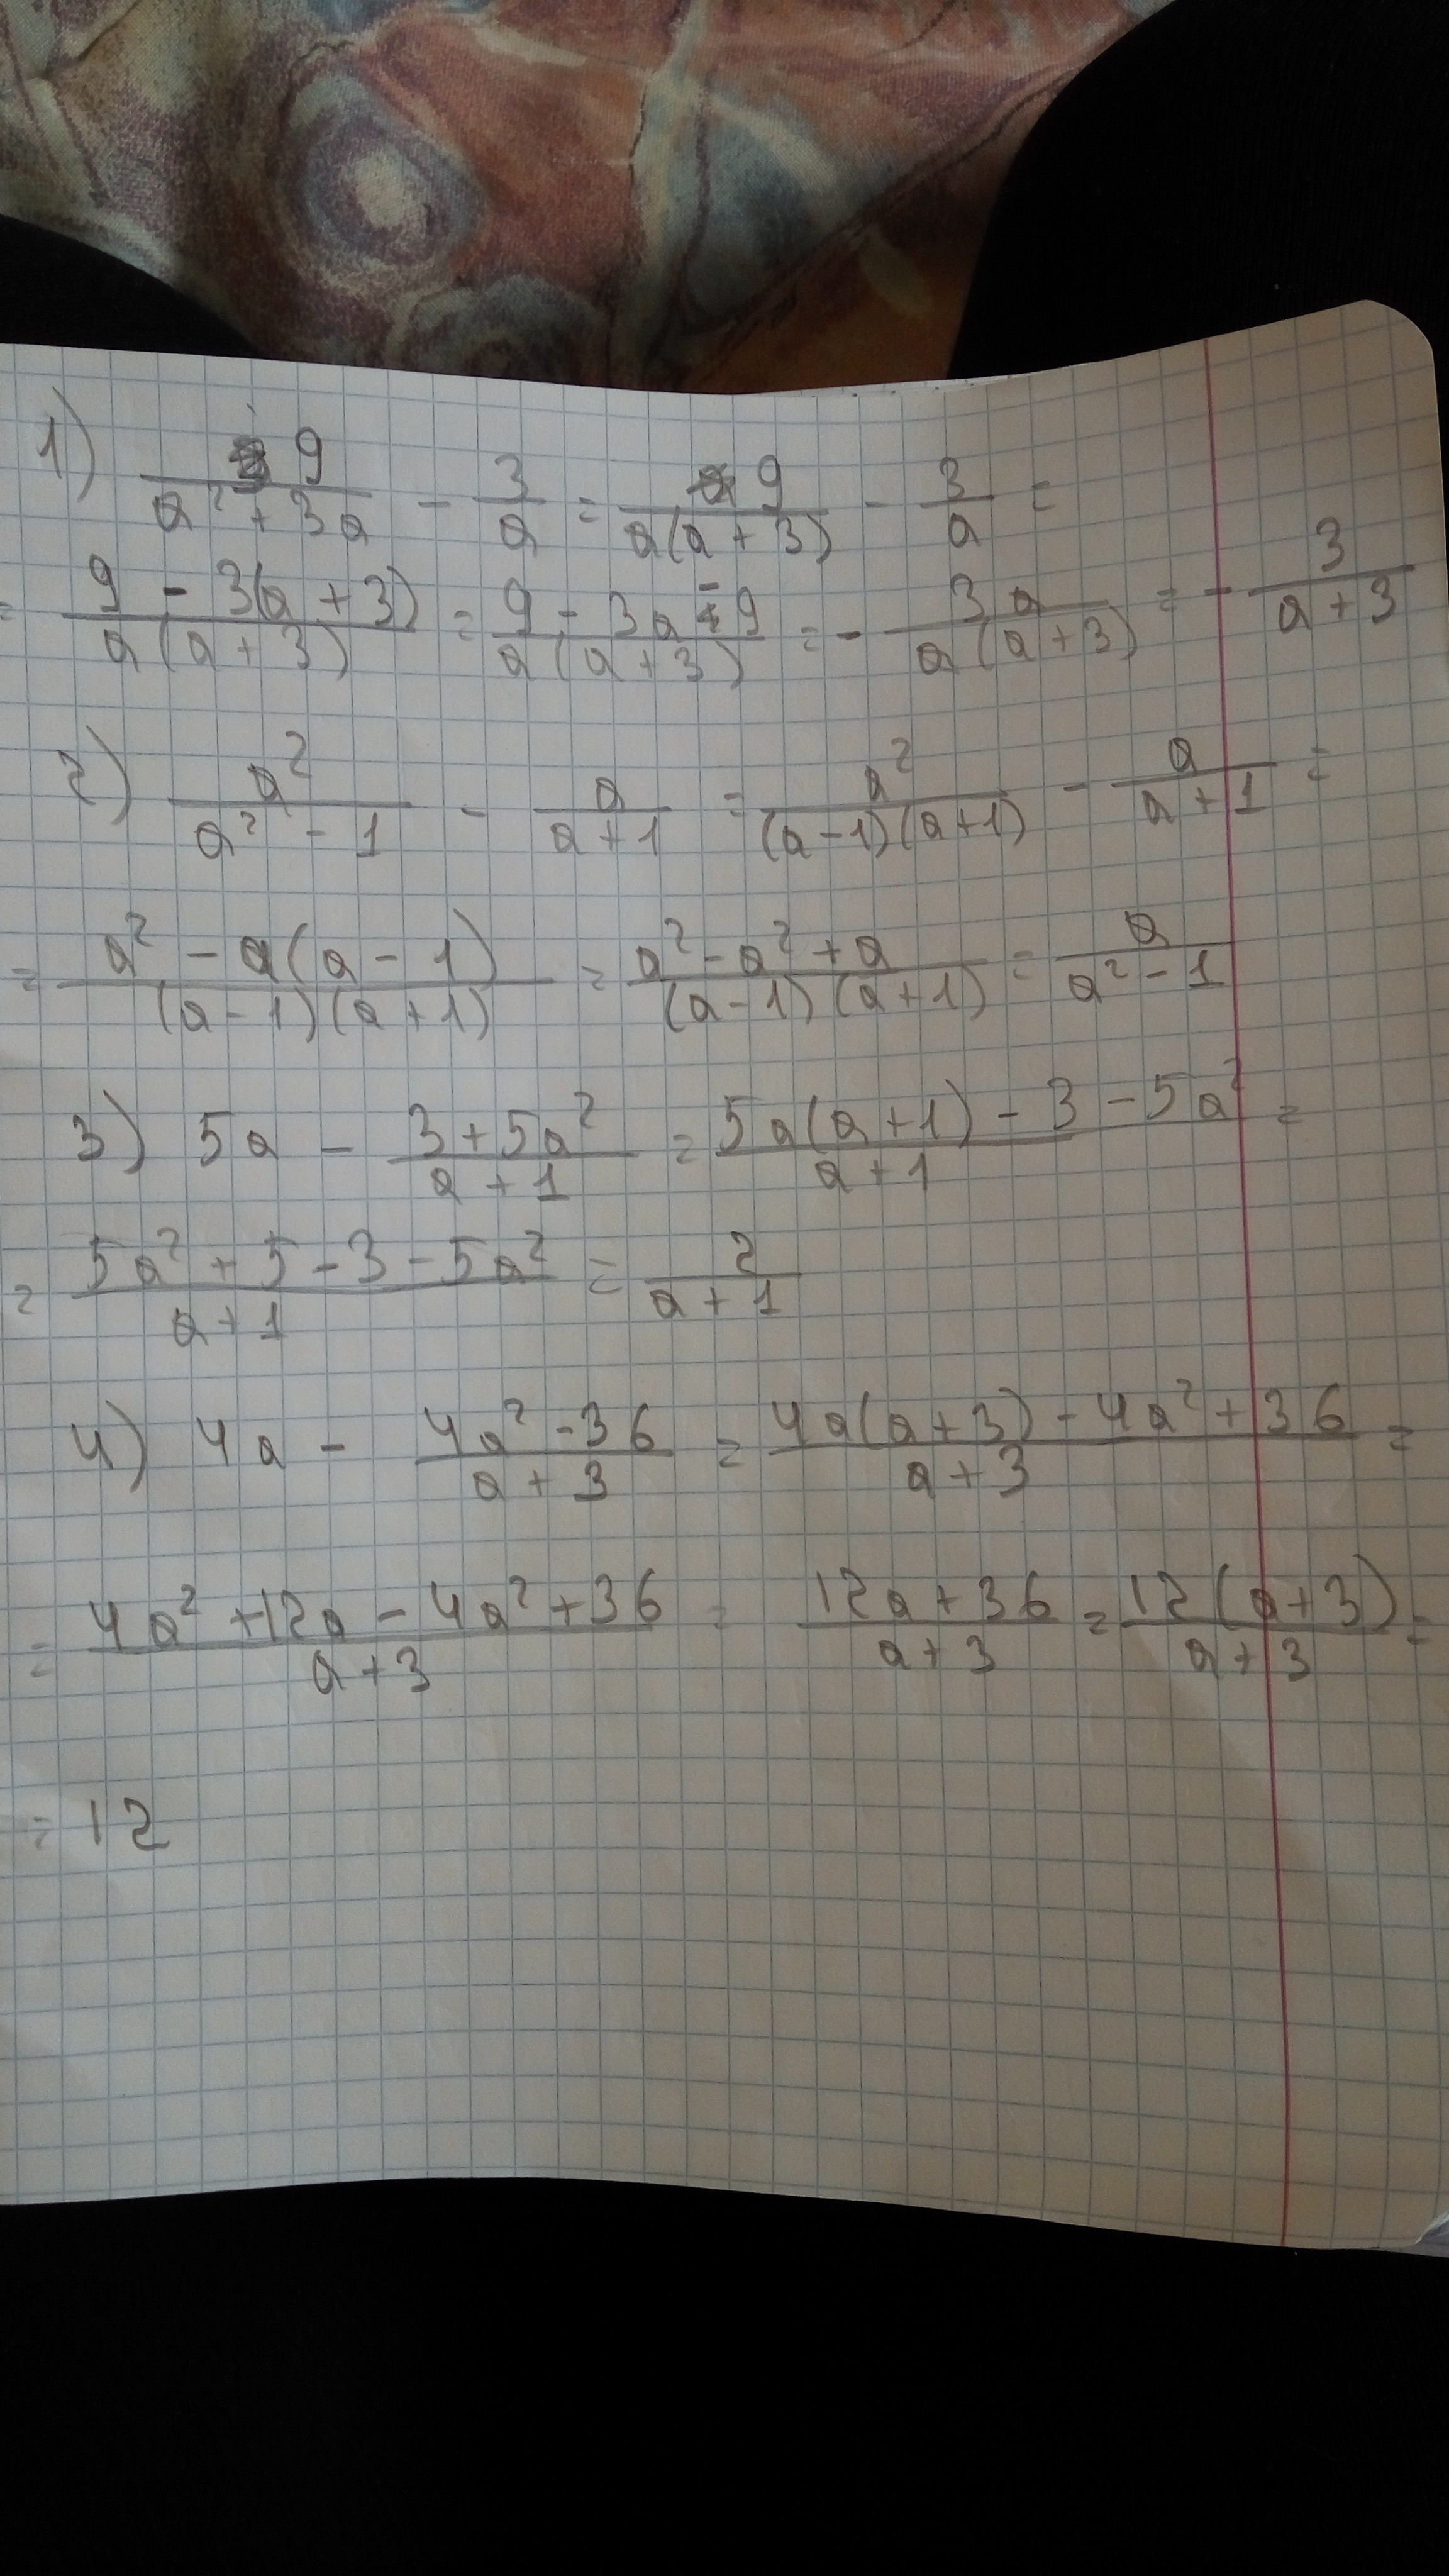 1) 9/(a² + 3a) - 3/a = 9/(a(a + 3)) - 3/a =
= (9 - 3(a + 3))/(a(a + 3)) = (9 - 3a - 9)/(a(a + 3)) = - 3a/(a(a + 3)) = - 3/(a + 3)
2) a²/(a² - 1) - a/(a + 1) = a²/((a - 1)(a + 1)) - a/(a + 1) =
= (a² - a(a - 1))/((a - 1)(a + 1)) = (a² - a² + a)/((a - 1)(a + 1)) = a/(a² - 1)
3) 5a - (3 + 5a²)/(a + 1) = (5a(a + 1) - 3 - 5a²)/(a + 1) =
= (5a² + 5 - 3 - 5a²)/(a + 1) = 2/(a + 1)
4) 4a - (4a² - 36)/(a + 3) = (4a(a + 3) - 4a² + 36)/(a + 3) =
= (4a² + 12a - 4a² + 36)/(a + 3) = (12a + 36)/(a + 3) = (12(a + 3))/(a + 3) =
= 12